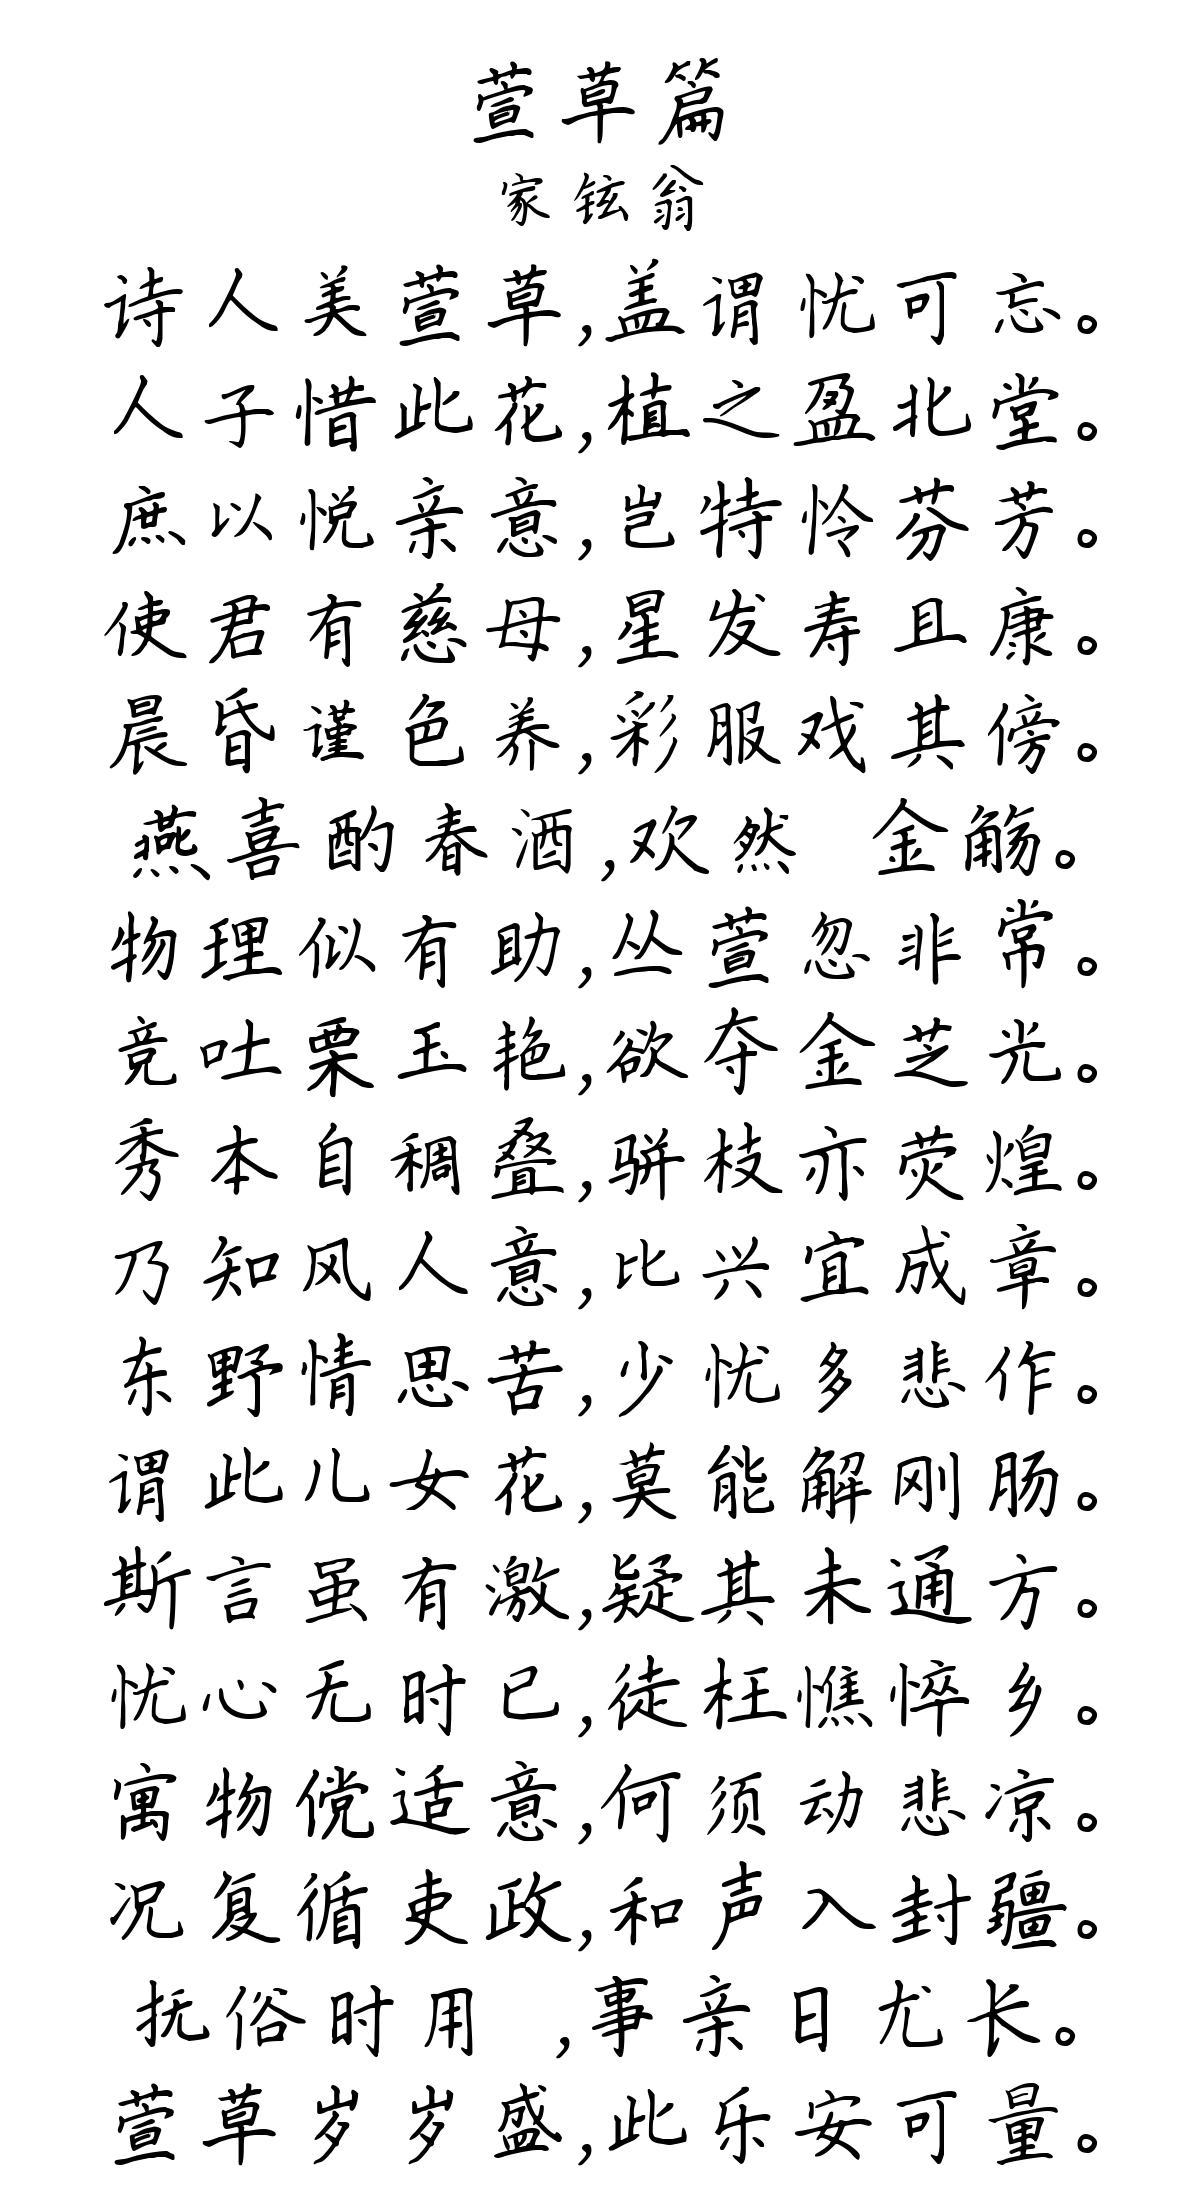 萱草篇
家铉翁
诗人美萱草,盖谓忧可忘。
人子惜此花,植之盈北堂。
庶以悦亲意,岂特怜芬芳。
使君有慈母,星发寿且康。
晨昏谨色养,彩服戏其傍。
燕喜酌春酒,欢然 金觞。
物理似有助,丛萱忽非常。
竞吐栗玉艳,欲夺金芝光。
秀本自稠叠,骈枝亦荧煌。
乃知风人意,比兴宜成章。
东野情思苦,少忧多悲作。
谓此儿女花,莫能解刚肠。
斯言虽有激,疑其未通方。
忧心无时已,徒枉憔悴乡。
寓物傥适意,何须动悲凉。
况复循吏政,和声入封疆。
抚俗时用 ,事亲日尤长。
萱草岁岁盛,此乐安可量。